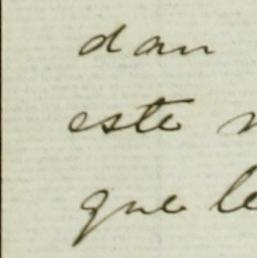 dan
este
que le